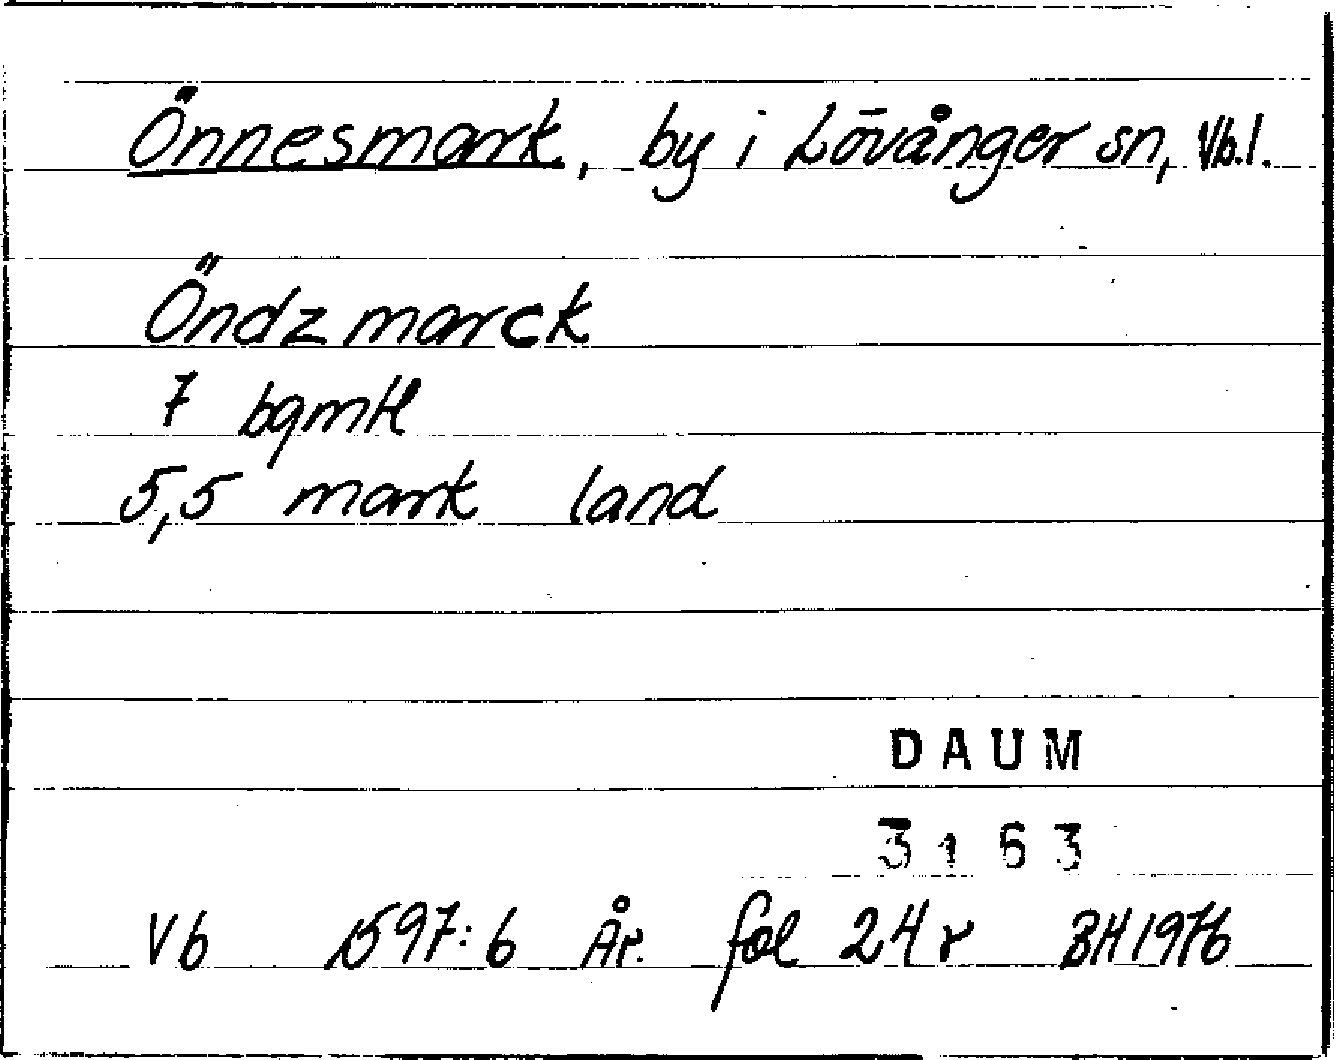 Önnesmark, by i Lövånger sn, Vb.l.
Öndzmarck
7 bqmtl
5,5 mark land
DAUM
3163
Vb 1597:6 År. fol 24r BH1976